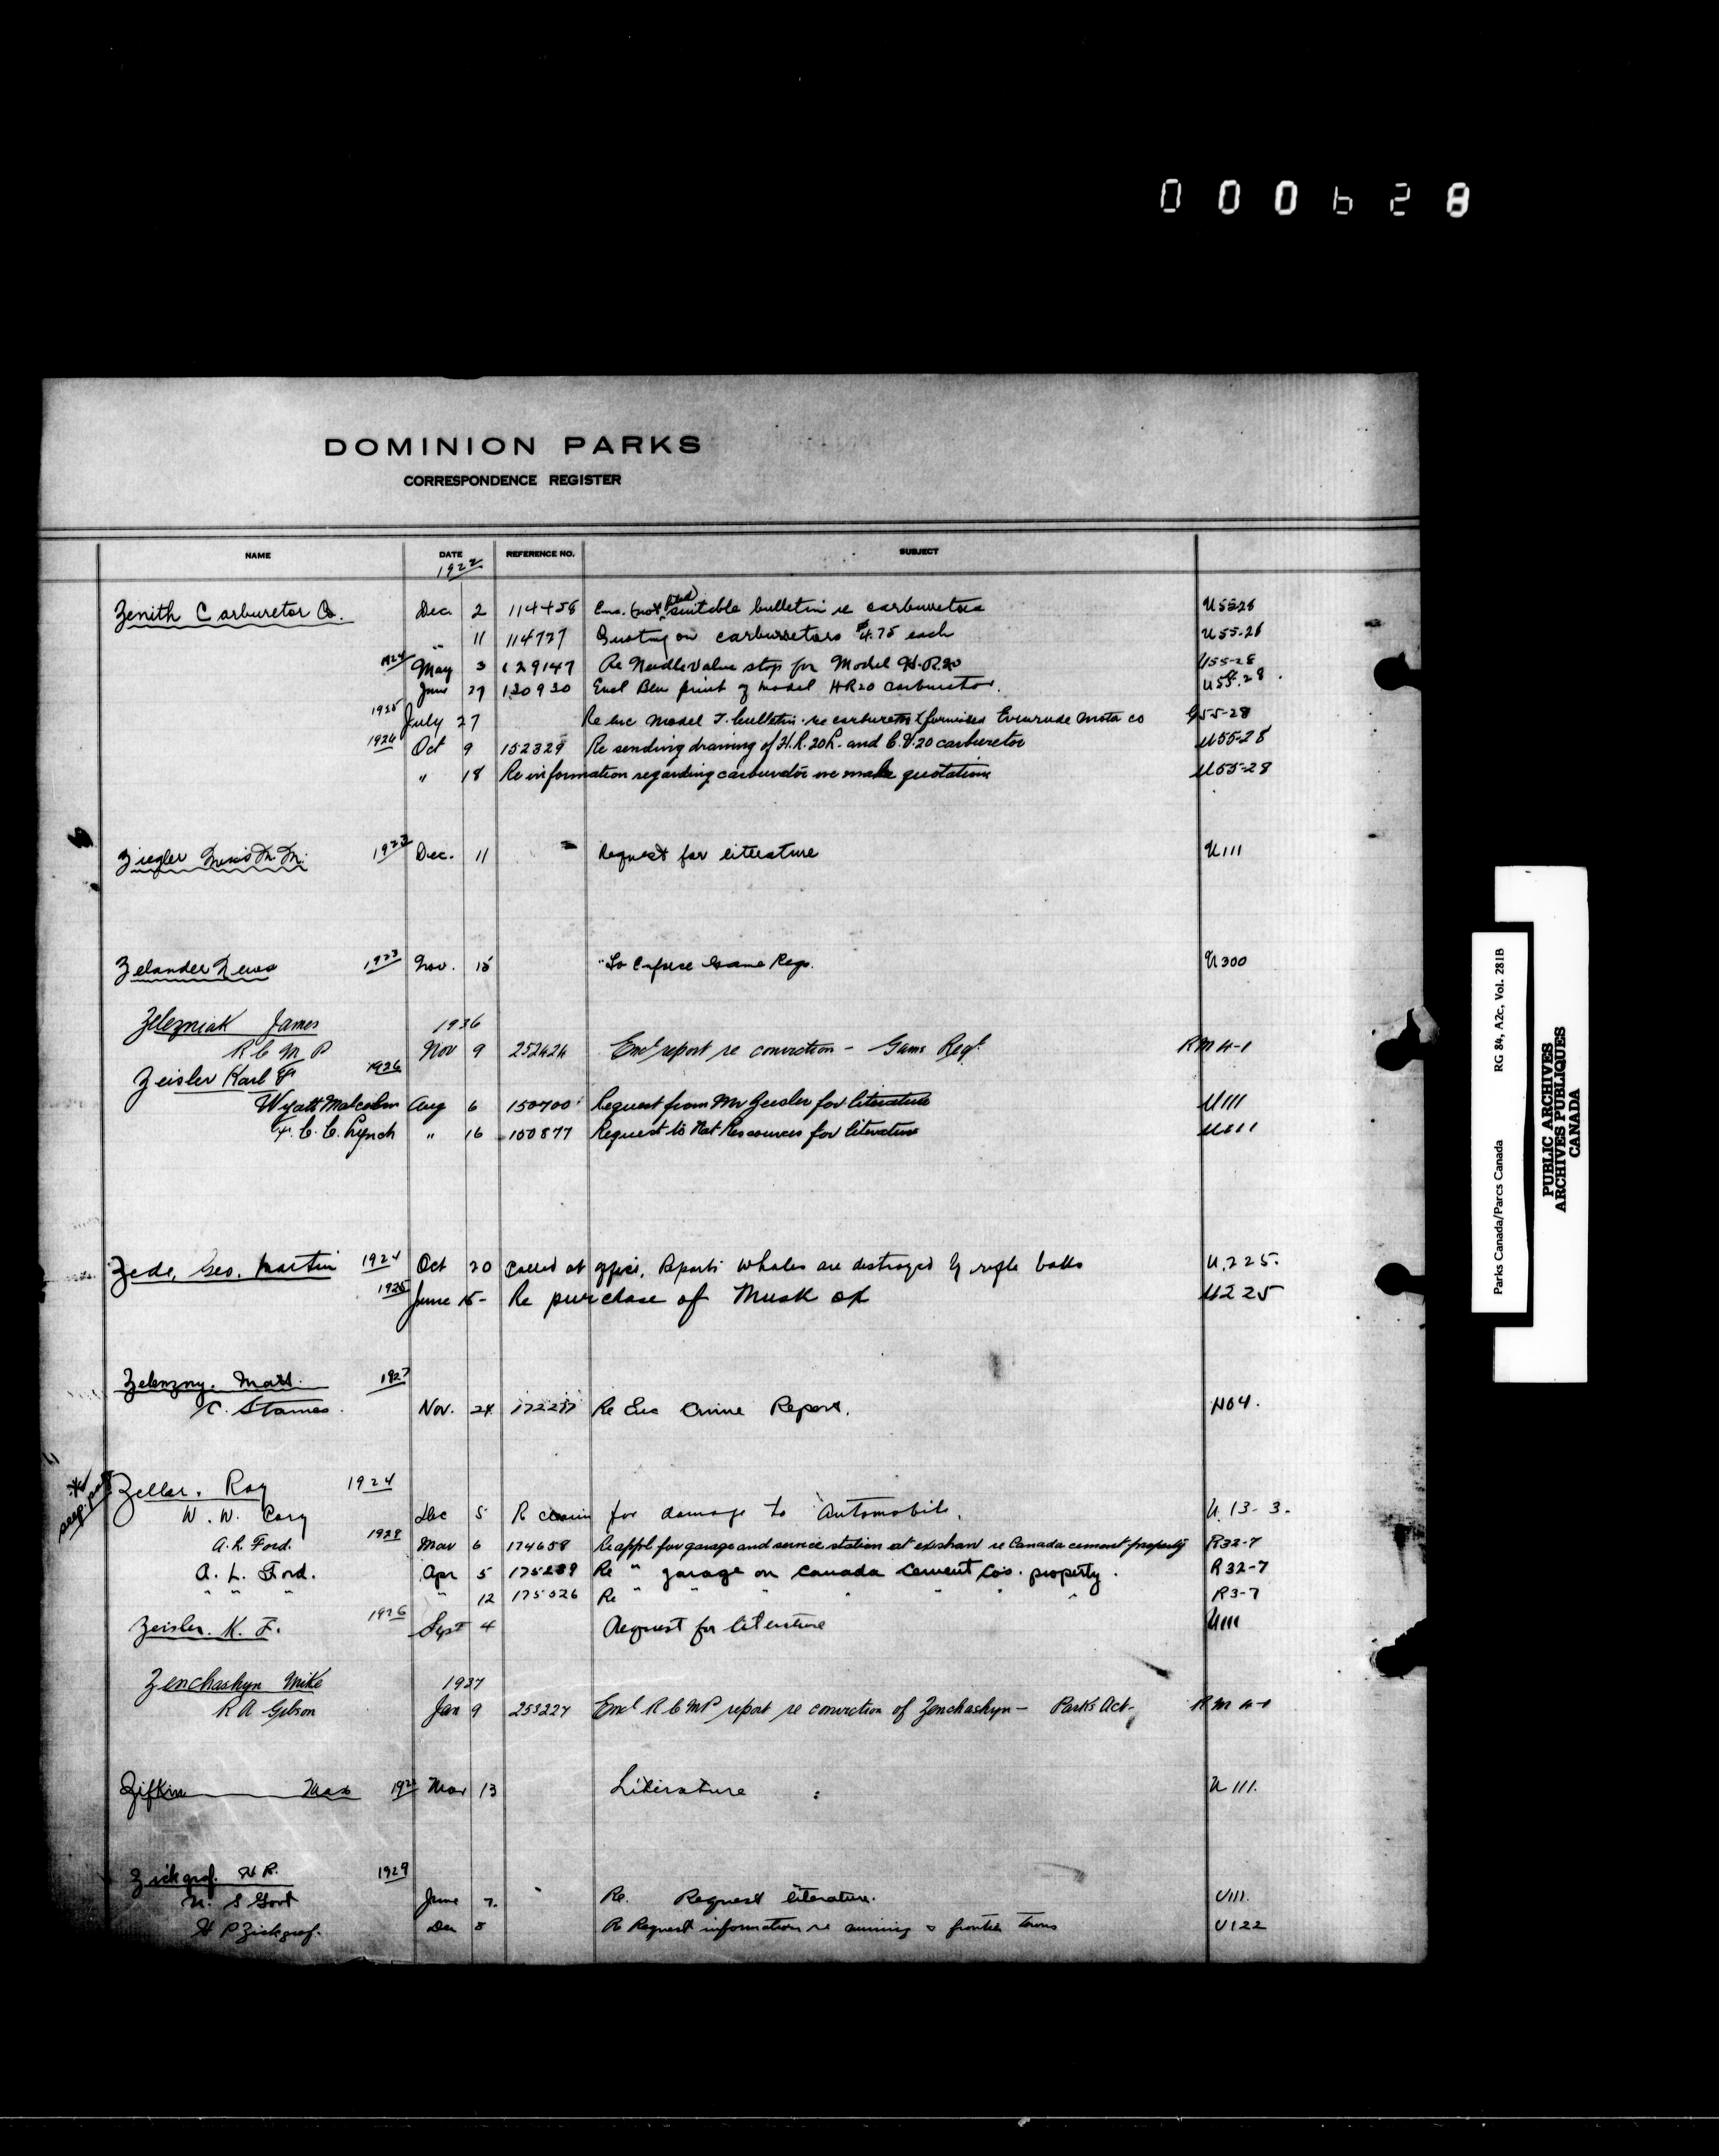 000628
DOMINION PARKS
CORRESPONDENCE REGISTER
NAME DATE REFERENCE NO. SUBJECT
1922
Zenith Carburetor Co. Dec. 2 114458 suitable bulletin re carburetors U55-28
" 11 114727 on carburretors $4.75 each U55-28
1924 May 3 129147 Re Needle Valve stop for Model H.R.20 U55-28
June 27 130930 Encl Blue print of model HR20 carburetor. U55-28.
1925 July 27 Re enc Model T. bulletin re carburetor furnished Evinrude Motor co U55-28
1926 Oct 9 152329 Re sending drawing of H.R. 20R. and C.V. 20 carburetor U55-28
" 18 Re information regarding carburetor we make quotations U55-28
Ziegler M. M. 1923 Dec. 11 Request for literature U111
Zelander 1923 Nov. 15 To Game Regs. U300
Zelezniak James 1936
R C M P Nov 9 252424 Encl report re conviction - Game Regs. RM 4-1
Zeisler Karl F 1926
Wyatt Malcolm Aug 6 150700 Request from Mr Zeisler for literature U111
F. C. C. Lynch " 16 150877 Request to Nat Resources for literature U111
Zede, Geo. Martin 1924 Oct 20 Called at office. Reports whales are destroyed by rifle balls U.225.
1925 June 15- Re purchase of Musk ox U225
Zelenzny. Matt. 1927
C. Starnes. Nov. 24 172277 Re Enc Crime Report.
Zeller. Roy 1924
W. W. Cory Dec 5 R claim for damage to Automobile. U. 13-3.
A. L. Ford. 1928 Mar 6 174658 Re appl for garage and service station at exshaw re Canada cement property R32-7
A. L. Ford. Apr 5 175239 Re " garage on Canada Cement Co's. property. R32-7
" " " " 12 175526 Re " " " " " " R3-7
Zeisler. K. F. 1926 Sept 4 Request for literature U111
Zenchashyn Mike 1937
R A Gibson Jan 9 253227 Encl R C M P report re conviction of Zenchashyn - Parks Act- RM 4-1
Zifkin Max Mar 13 Literature U 111.
Zickgraf. H R. 1929
U. S Govt June 7. Re. Request literature. U111.
H P Zickgraf. Dec 5 Re Request information re mining & frontier towns U122
Parks Canada/Parcs Canada RG 84, A2c, Vol. 281B
PUBLIC ARCHIVES
ARCHIVES PUBLIQUES
CANADA